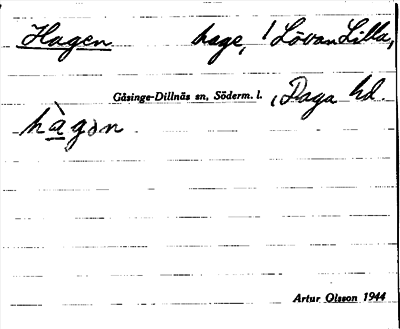 Hagen hage, ! Lövan Lilla,
Gåsinge-Dillnäs sn, Söderm. l. , Daga hd.
hàgɔn
Artur Olsson 1944